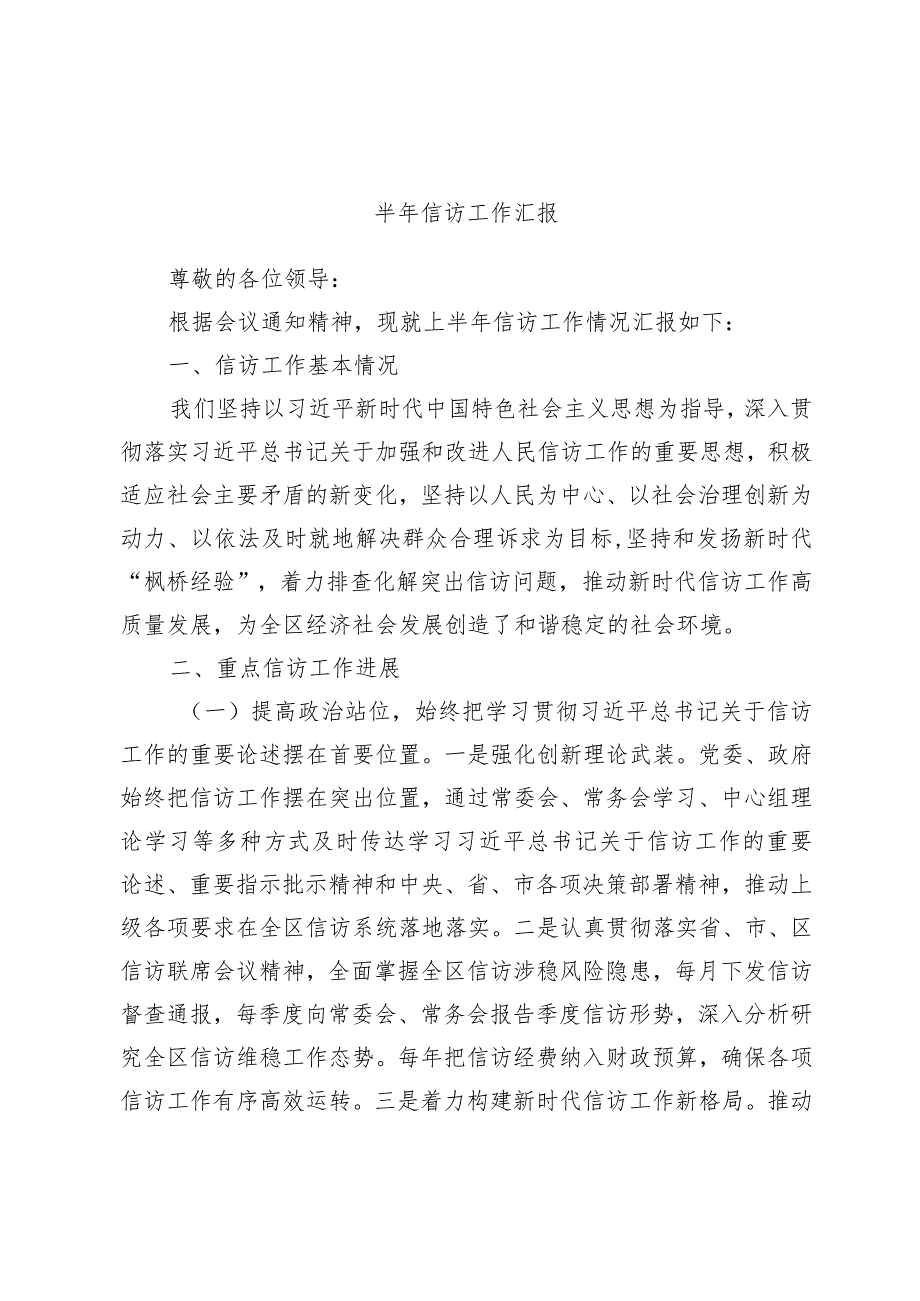 半年信访工作汇报
尊敬的各位领导：
根据会议通知精神，现就上半年信访工作情况汇报如下：
一、信访工作基本情况
我们坚持以习近平新时代中国特色社会主义思想为指导，深入贯
彻落实习近平总书记关于加强和改进人民信访工作的重要思想，积极
适应社会主要矛盾的新变化，坚持以人民为中心、以社会治理创新为
动力、以依法及时就地解决群众合理诉求为目标,坚持和发扬新时代
“枫桥经验”，着力排查化解突出信访问题，推动新时代信访工作高
质量发展，为全区经济社会发展创造了和谐稳定的社会环境。
二、重点信访工作进展
（一）提高政治站位，始终把学习贯彻习近平总书记关于信访
工作的重要论述摆在首要位置。一是强化创新理论武装。党委、政府
始终把信访工作摆在突出位置，通过常委会、常务会学习、中心组理
论学习等多种方式及时传达学习习近平总书记关于信访工作的重要
论述、重要指示批示精神和中央、省、市各项决策部署精神，推动上
级各项要求在全区信访系统落地落实。二是认真贯彻落实省、市、区
信访联席会议精神，全面掌握全区信访涉稳风险隐患，每月下发信访
督查通报，每季度向常委会、常务会报告季度信访形势，深入分析研
究全区信访维稳工作态势。每年把信访经费纳入财政预算，确保各项
信访工作有序高效运转。三是着力构建新时代信访工作新格局。推动